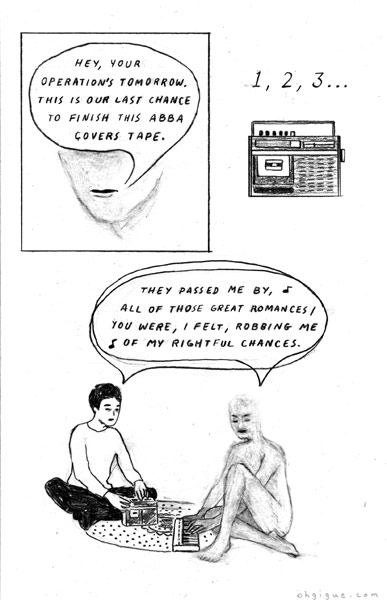 HEY, YOUR
OPERATION'S TOMORROW.
THIS IS OUR LAST CHANCE
TO FINISH THIS ABBA
COVERS TAPE.
1, 2, 3...
THEY PASSED ME BY, ♪
ALL OF THOSE GREAT ROMANCES/
YOU WERE, I FELT, ROBBING ME
♪ OF MY RIGHTFUL CHANCES.
ohgigue.com